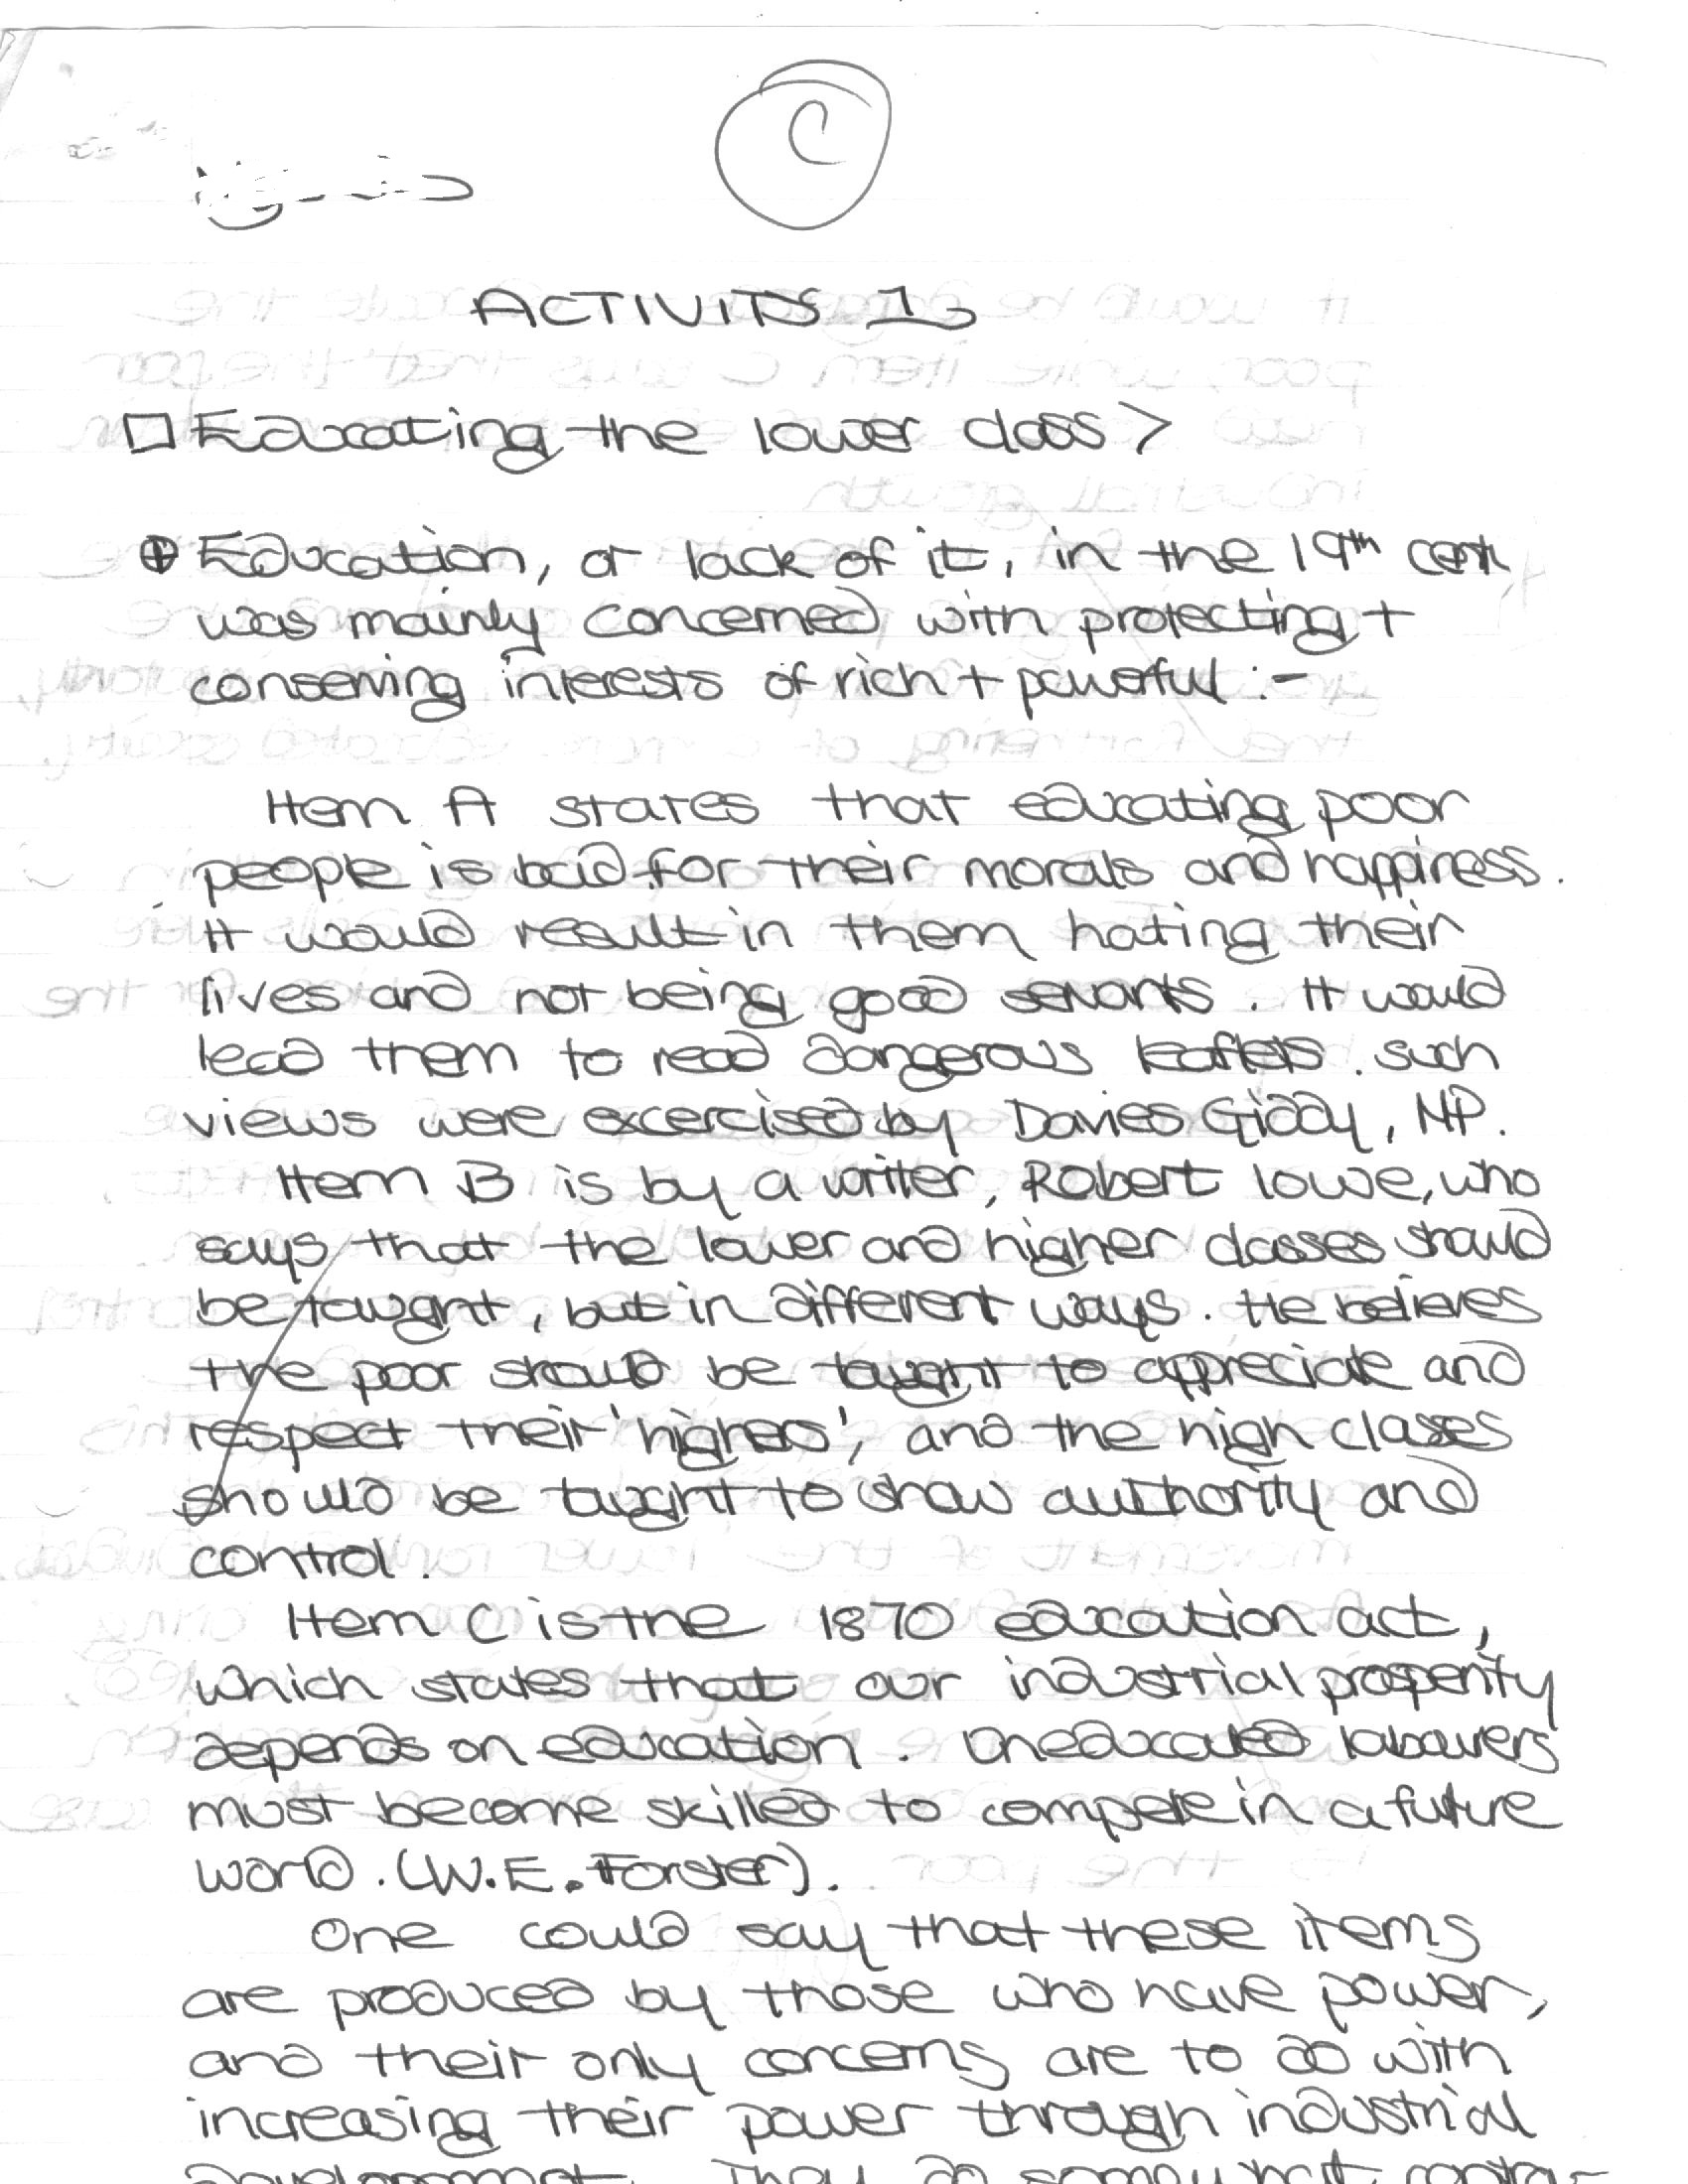 C
ACTIVITS 1
Educating the lower class >
Education, or lack of it, in the 19th cent
was mainly concerned with protecting +
conserving interests of rich + powerful :-
Item A states that educating poor
people is bad for their morals and happiness.
It would result in them hating their
lives and not being good servants. It would
lead them to read dangerous leaflets. such
views were excercised by Davies Giddy, MP.
Item B is by a writer, Robert lowe, who
says that the lower and higher classes should
be taught, but in different ways. He believes
the poor should be taught to appreciate and
respect their 'highers', and the high classes
should be taught to show authority and
control.
Item C is the 1870 education act,
which states that our industrial prosperity
depends on education. Uneducated labourers
must become skilled to compete in a future
world. (W.E. Forster).
One could say that these items
are produced by those who have power,
and their only concerns are to do with
increasing their power through industrial
development. They do somewhat